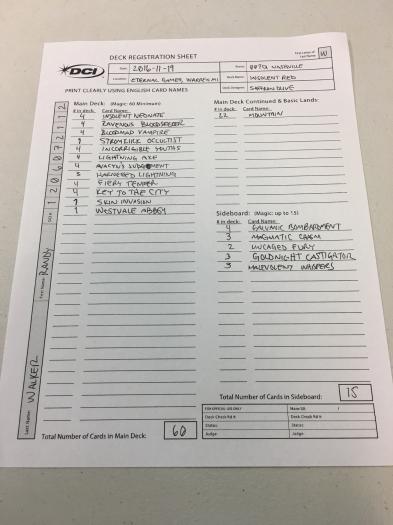 DECK REGISTRATION SHEET
DCI
Date: 2016-11-19
Event: RPTQ NASHVILLE
First Letter of Last Name W
Location: ETERNAL GAMES, WARREN MI
Deck Name: INSOLENT RED
Deck Designer: SAFFRON OLIVE
PRINT CLEARLY USING ENGLISH CARD NAMES
Main Deck: (Magic: 60 Minimum)
# in deck: Card Name:
4 INSOLENT NEONATE
4 RAVENOUS BLOODSEEKER
4 BLOODMAD VAMPIRE
STROMKIRK OCCULTIST
4 INCORRIGIBLE YOUTHS
4 LIGHTNING AXE
4 AVACYN'S JUDGEMENT
3 HARNESSED LIGHTNING
4 FIERY TEMPER
4 KEY TO THE CITY
SKIN INVASION
1 WESTVALE ABBEY
Total Number of Cards in Main Deck: 60
Main Deck Continued & Basic Lands:
# in deck: Card Name:
22 MOUNTAIN
Sideboard: (Magic: up to 15)
# in deck: Card Name:
4 GALVANIC BOMBARDMENT
3 MAGMATIC CHASM
2 UNCAGED FURY
3 GOLDNIGHT CASTIGATOR
3 MALEVOLENT WHISPERS
Total Number of Cards in Sideboard: 15
FOR OFFICIAL USE ONLY
Main/SB: /
Deck Check Rd #:
Deck Check Rd #:
Status:
Status:
Judge:
Judge:
DCI #: 1206072112
First Name: RANDY
Last Name: WALKER